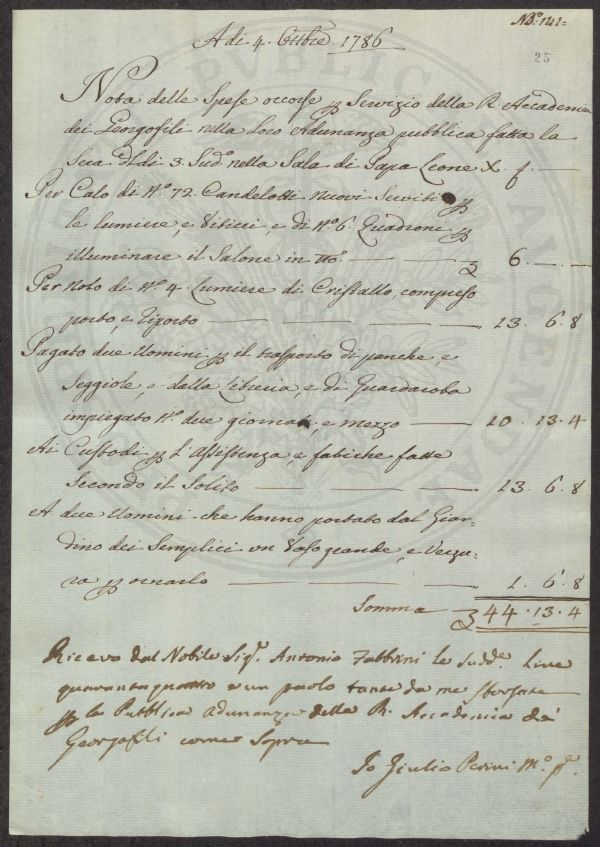 N.º 141=
25
A dì 4. Ottbre 1786
Nota delle Spese occorse p Servizio della R. Accademia
dei Georgofili nella Loro Adunanza pubblica fatta la
Sera dì 3. Sud.º nella Sala di Papa Leone X. f. —
Per Calo di N.º 72. Candelotti nuovi Serviti p
le lumiere, e Viticci, e di N.º 6. Quadroni p
illuminare il Salone in tto. — — £ 6. — . —
Per Nolo di N.º 4. Lumiere di Cristallo, compreso
porto, e riporto — — — — 13. 6. 8
Pagato due Uomini p il trasporto di panche, e
Seggiole, e dalla Libreria, e di Guardaroba
impiegato N.º due giornate, e mezzo — 10. 13. 4
Ai Custodi p l'Assistenza, e fatiche fatte
Secondo il Solito — — — 13. 6. 8
A due Uomini che hanno portato dal Giar-
dino dei Semplici un Vaso grande, e Verzu-
ra p ornarlo — — — 1. 6. 8
Somma £ 44. 13. 4
Ricevo dal Nobile Sig.r Antonio Fabbrini le Sudd.e Lire
quarantaquattro e un paolo tante da me sborsate
p la Pubblica Adunanza della R. Accademia de'
Georgofili come Sopra
Io Giulio Perini M.º p.ª
PUBLICAE